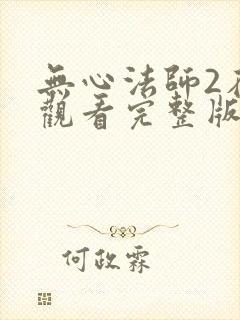 無心法師2
觀看完整版
何政霖